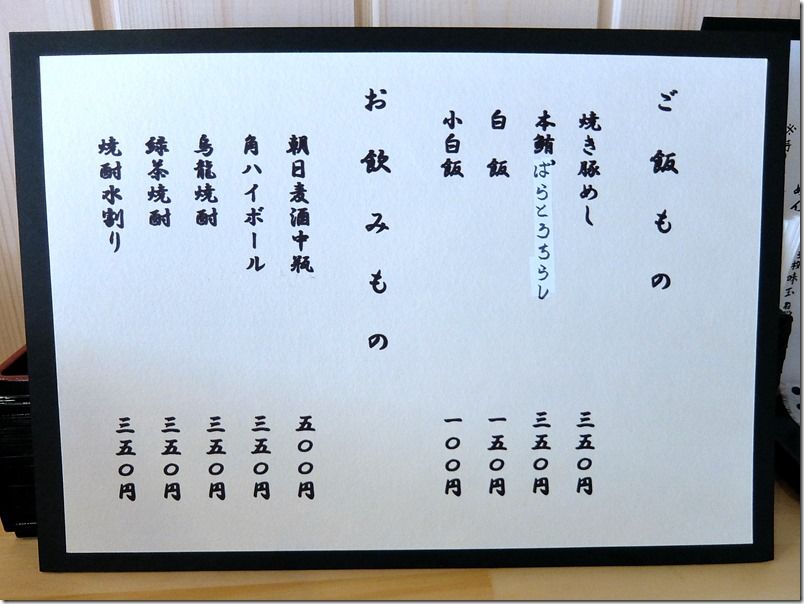 ご飯もの
焼き豚めし 三五〇円
本鮪ばらとろちらし 三五〇円
白飯 一五〇円
小白飯 一〇〇円
お飲みもの
朝日麦酒中瓶 五〇〇円
角ハイボール 三五〇円
烏龍焼酎 三五〇円
緑茶焼酎 三五〇円
焼酎水割り 三五〇円